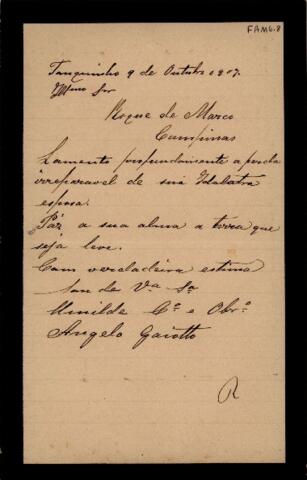 FAM6.8
Tanquinho 9 de Outubro 907.
Illmo Snr
Roque de Marco
Campinas
Lamento profundamente a perda
irreparavel de sua Idolatra
esposa.
Páz a sua alma a terra que
seja leve.
Com verdadeira estima
Sou de Vª Sª
Umilde Cº e Obrº
Angelo Gaiotto
R